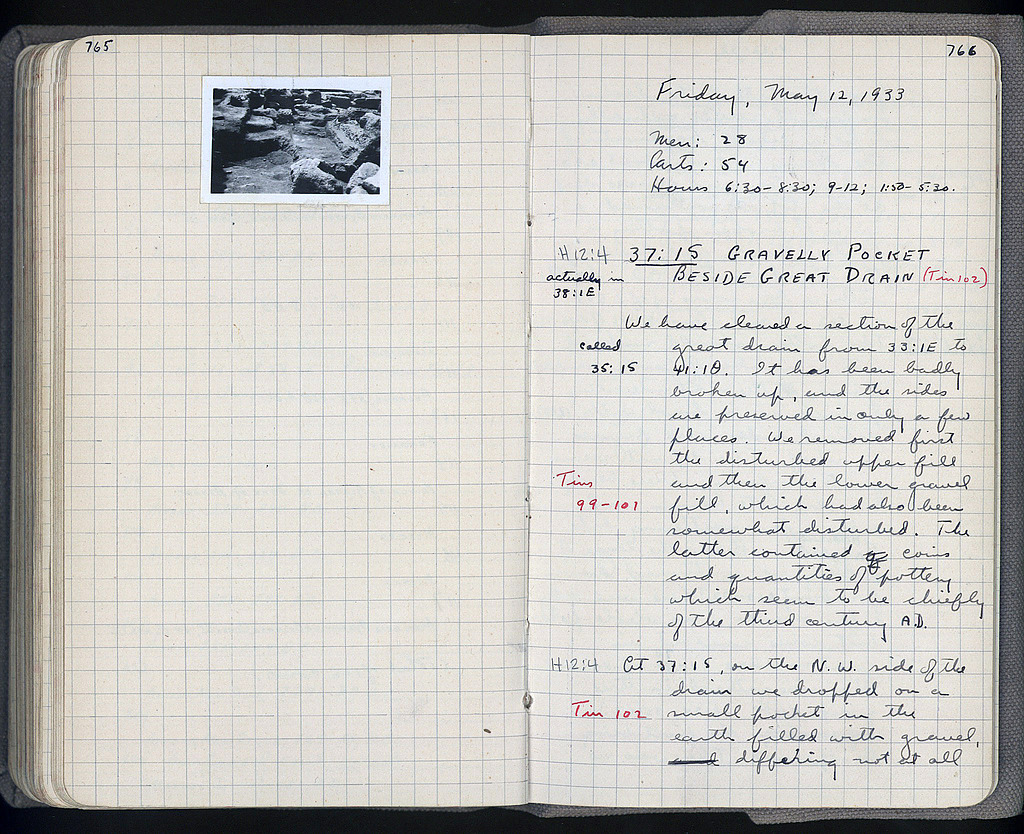 765
766
Friday, May 12, 1933
Men: 28
Carts: 54
Hours 6:30-8:30; 9-12; 1:30-5:30.
H12:4 37:15 GRAVELLY POCKET
actually in BESIDE GREAT DRAIN (Tin 102)
38:1E
We have cleared a section of the
called great drain from 33:1E to
35:15 41:10. It has been badly
broken up, and the sides
are preserved in only a few
places. We removed first
the disturbed upper fill
Tins and then the lower gravel
99-101 fill, which had also been
somewhat disturbed. The
latter contained coins
and quantities of pottery
which seem to be chiefly
of the third century A.D.
H12:4 At 37:15, on the N.W. side of the
drain we dropped on a
Tin 102 small pocket in the
earth filled with gravel,
and differing not at all